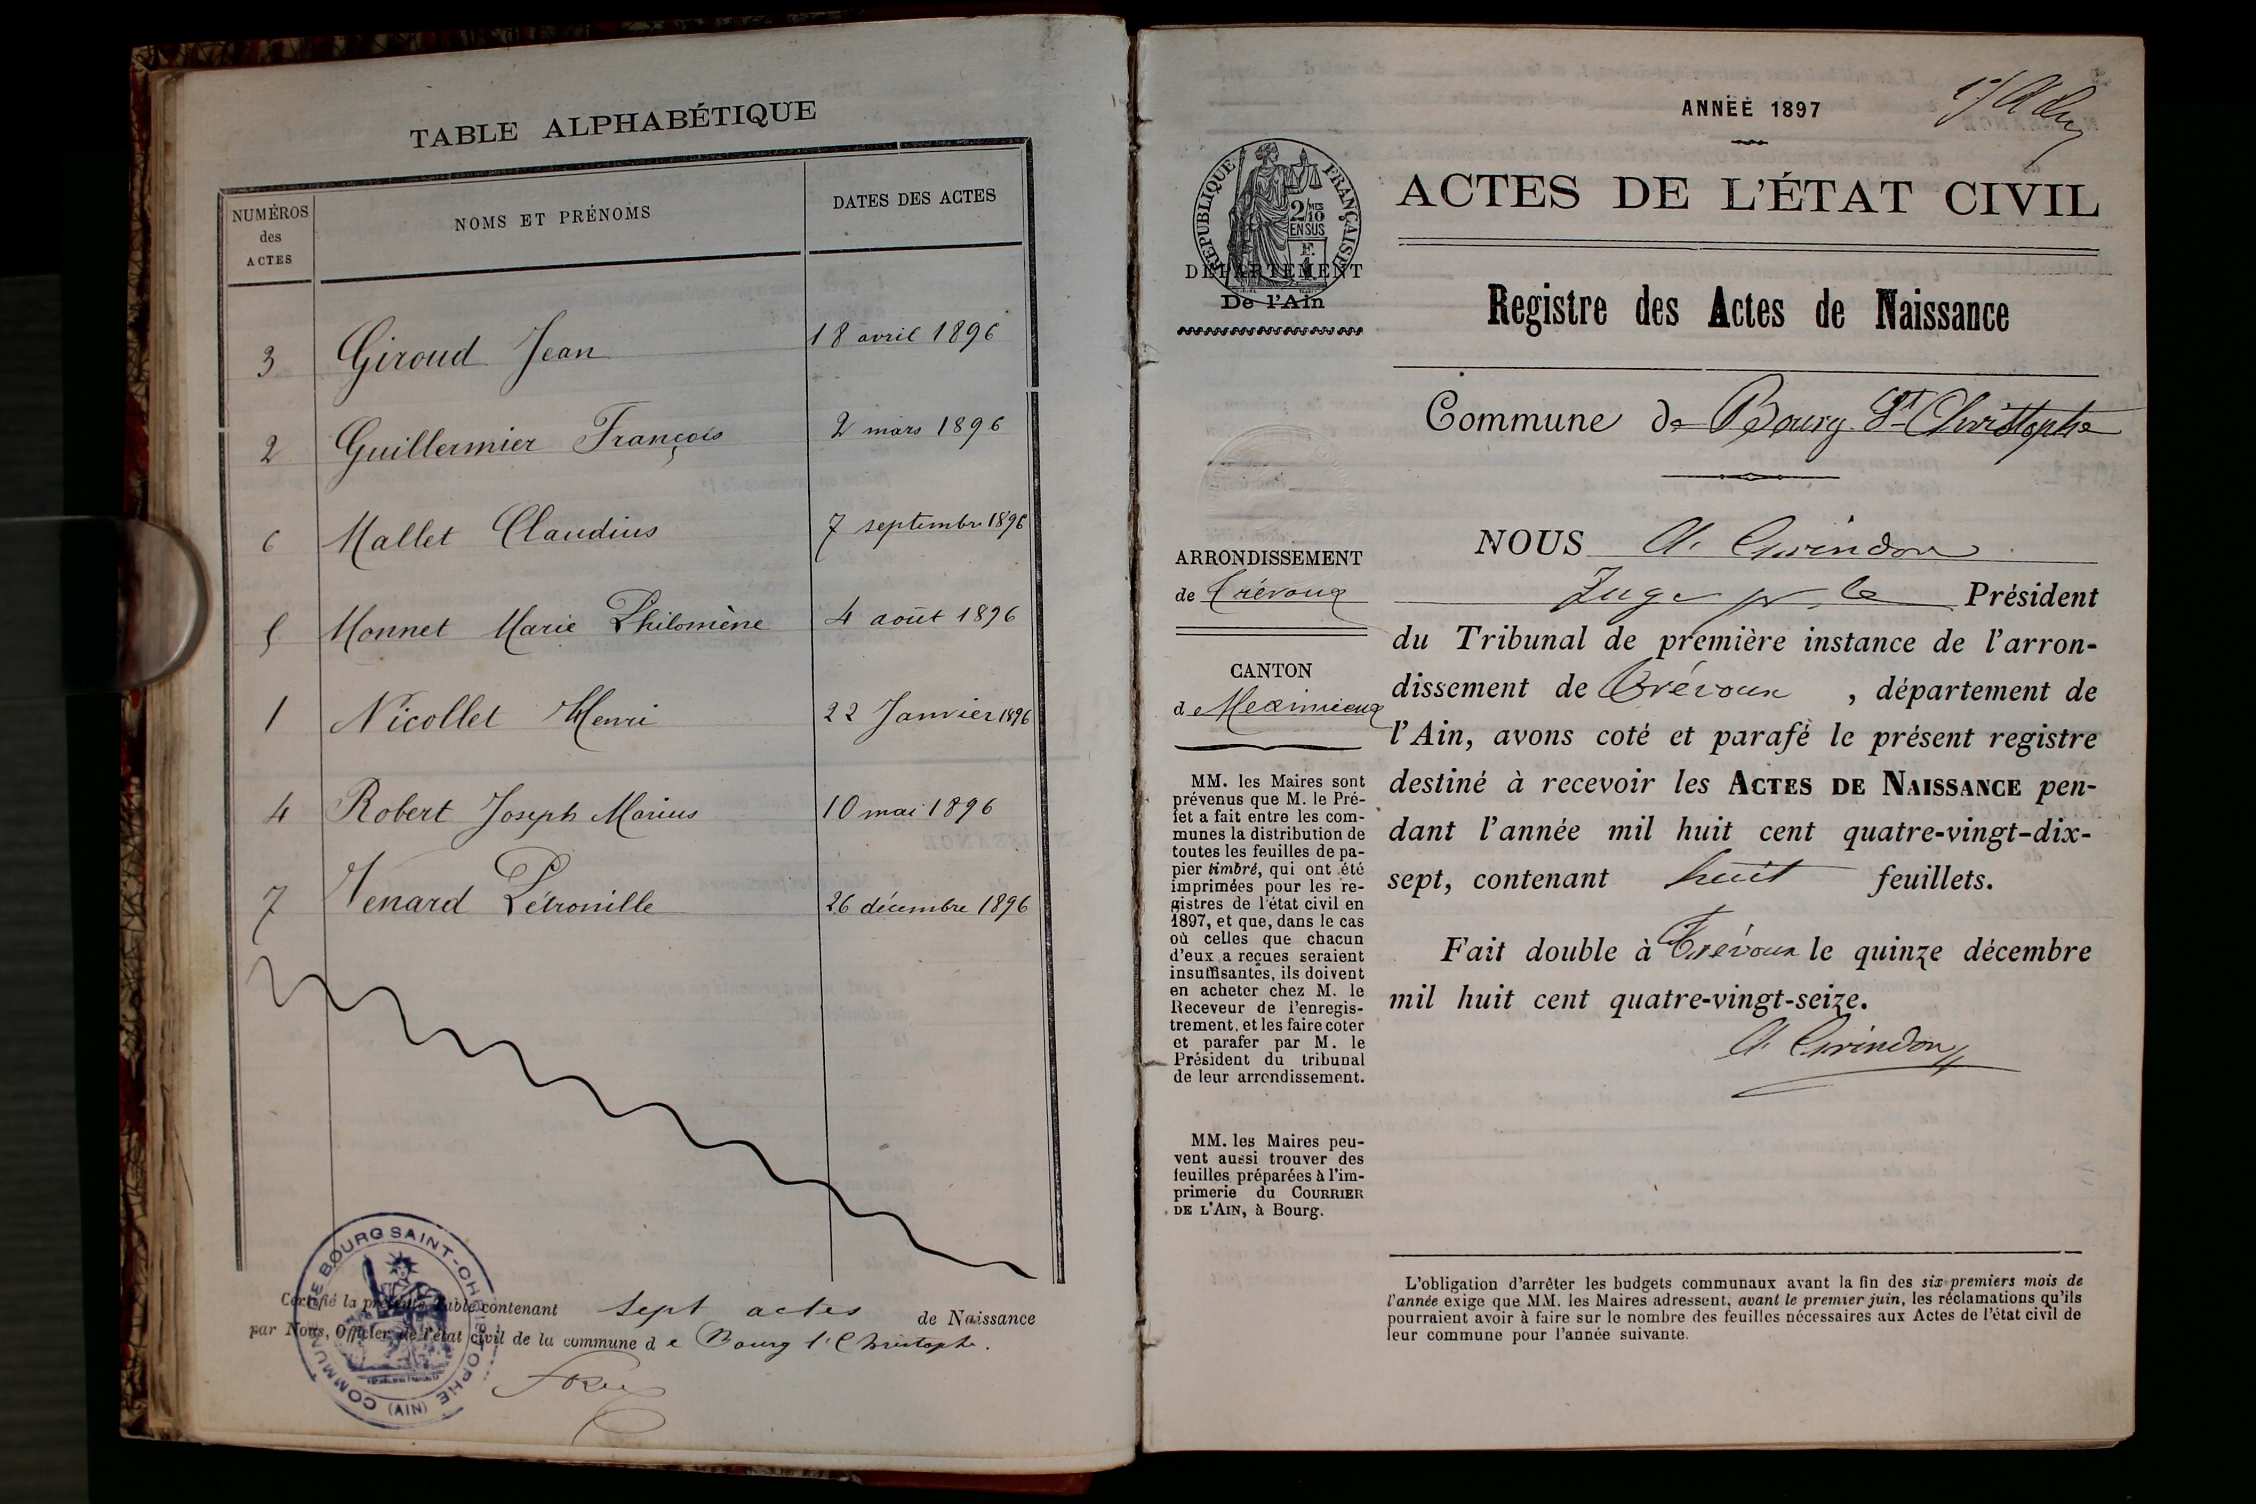 TABLE ALPHABÉTIQUE
NUMÉROS
des
ACTES
NOMS ET PRÉNOMS
DATES DES ACTES
3 Giroud Jean 18 avril 1896
2 Guillermier François 2 mars 1896
6 Mallet Claudius 7 septembre 1896
5 Monnet Marie Philomène 4 août 1896
1 Nicollet Henri 22 Janvier 1896
4 Robert Joseph Marius 10 mai 1896
7 Venard Pétronille 26 décembre 1896
Certifié la présente Table contenant sept actes de Naissance
par Nous, Officier de l'état civil de la commune de Bourg St Christophe.
COMMUNE DE BOURG SAINT-CHRISTOPHE
(AIN)
ANNÉE 1897
ACTES DE L'ÉTAT CIVIL
RÉPUBLIQUE FRANÇAISE
2/10 MES
EN SUS
F.
1
DÉPARTEMENT
De l'Ain
Registre des Actes de Naissance
Commune de Bourg St Christophe
ARRONDISSEMENT
de Trévoux
CANTON
de Meximieux
MM. les Maires sont
prévenus que M. le Pré-
fet a fait entre les com-
munes la distribution de
toutes les feuilles de pa-
pier timbré, qui ont été
imprimées pour les re-
gistres de l'état civil en
1897, et que, dans le cas
où celles que chacun
d'eux a reçues seraient
insuffisantes, ils doivent
en acheter chez M. le
Receveur de l'enregis-
trement, et les faire coter
et parafer par M. le
Président du tribunal
de leur arrondissement.
MM. les Maires peu-
vent aussi trouver des
feuilles préparées à l'im-
primerie du COURRIER
DE L'AIN, à Bourg.
NOUS A. Grindon
Juge pr le Président
du Tribunal de première instance de l'arron-
dissement de Trévoux, département de
l'Ain, avons coté et parafé le présent registre
destiné à recevoir les ACTES DE NAISSANCE pen-
dant l'année mil huit cent quatre-vingt-dix-
sept, contenant huit feuillets.
Fait double à Trévoux le quinze décembre
mil huit cent quatre-vingt-seize.
A. Grindon
L'obligation d'arrêter les budgets communaux avant la fin des six premiers mois de
l'année exige que MM. les Maires adressent, avant le premier juin, les réclamations qu'ils
pourraient avoir à faire sur le nombre des feuilles nécessaires aux Actes de l'état civil de
leur commune pour l'année suivante.